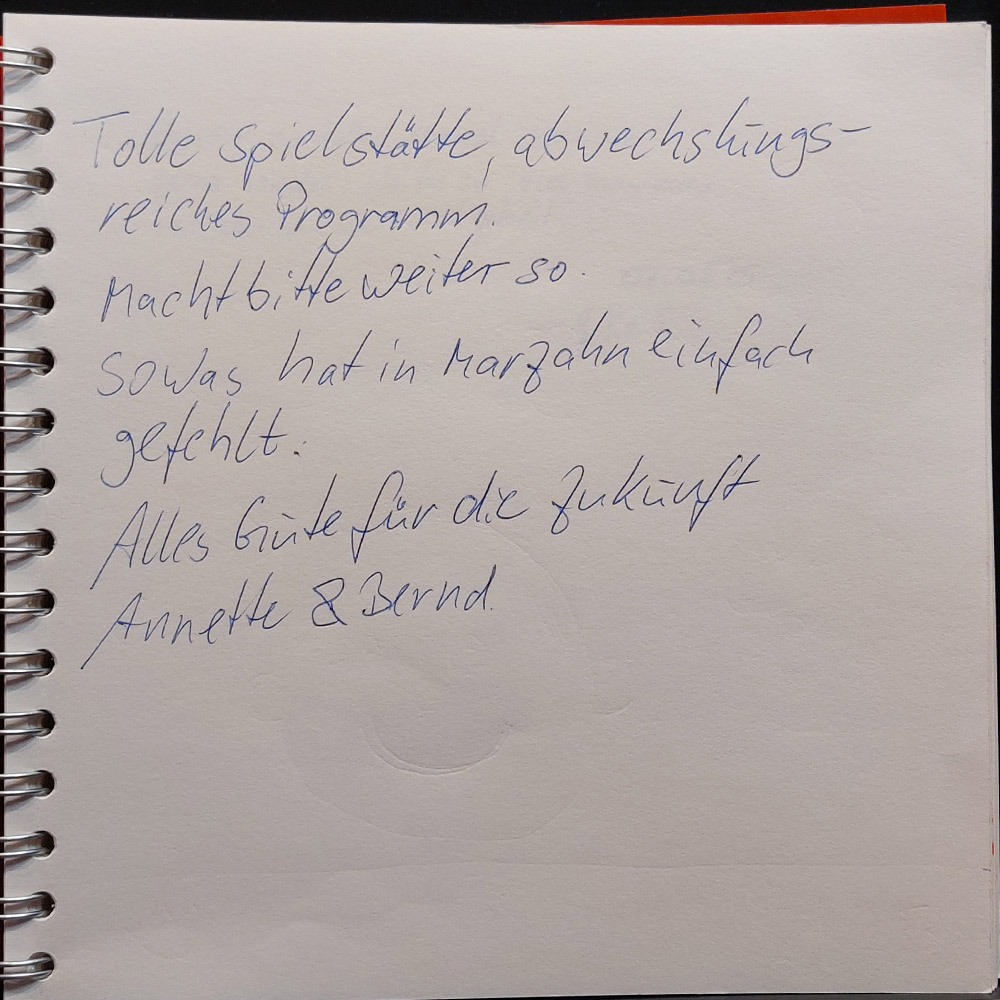 Tolle Spielstätte, abwechslungs-
reiches Programm.
Macht bitte weiter so.
Sowas hat in Marzahn einfach
gefehlt.
Alles Gute für die Zukunft
Annette & Bernd